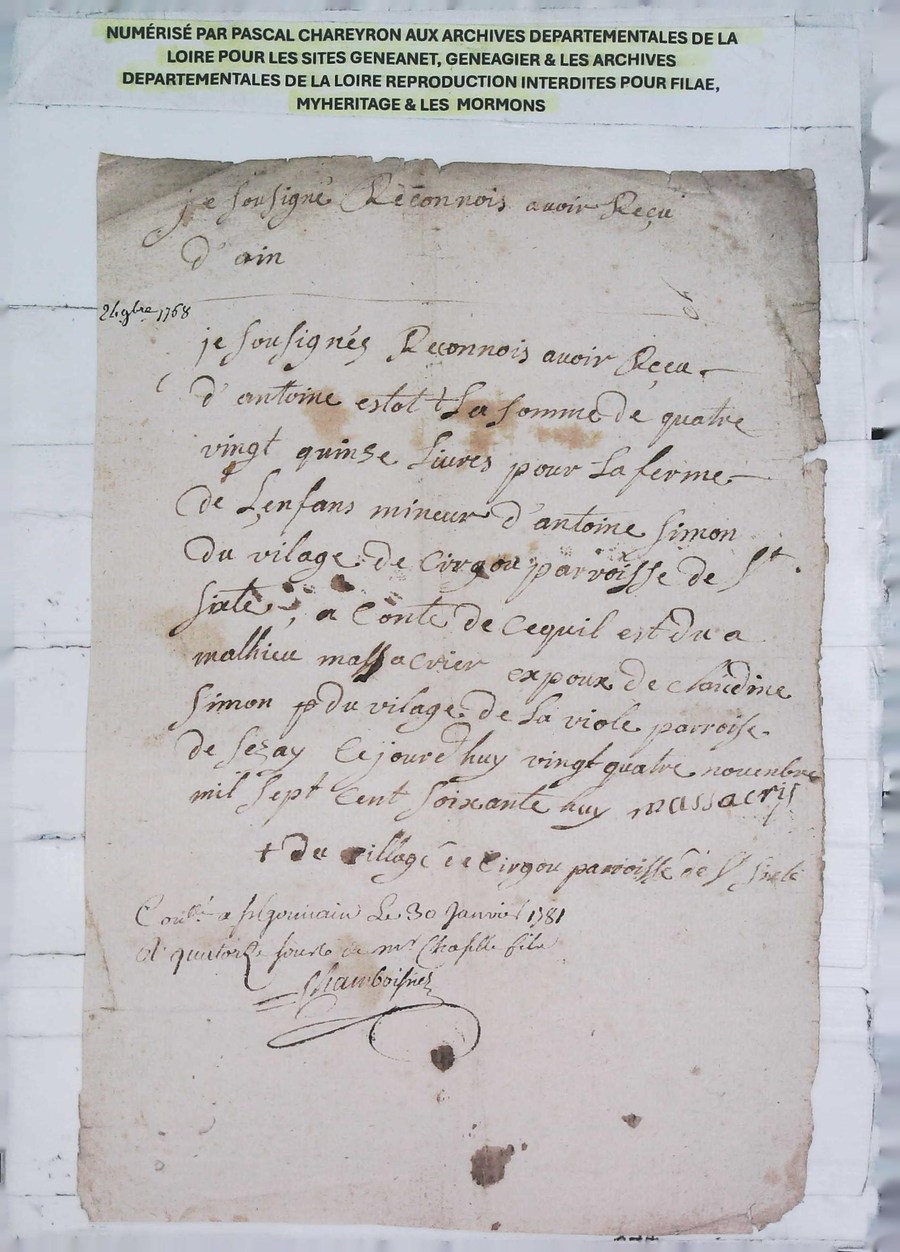 NUMÉRISÉ PAR PASCAL CHAREYRON AUX ARCHIVES DEPARTEMENTALES DE LA
LOIRE POUR LES SITES GENEANET, GENEAGIER & LES ARCHIVES
DEPARTEMENTALES DE LA LOIRE REPRODUCTION INTERDITES POUR FILAE,
MYHERITAGE & LES MORMONS
je sousigné Reconnois avoir Reçu
d'ain
24 9bre 1768
je sousignés Reconnois avoir Reçu
d'antoine estot + La somme de quatre
vingt quinse Livres pour La ferme
de Lenfans mineur d'antoine simon
du vilage de Cirgou parroisse de St
sixte, a Conte de cequil est du a
mathieu massacrier expoux de claudine
simon du vilage de La viole parroise
de sezay Cejourd'huy vingt quatre novenbre
mil sept Cent soixante huy massacrij
+ du village de Cirgou parroisse de St Sixte
Le 30 Janvier 1781
de mr Chapelle fils